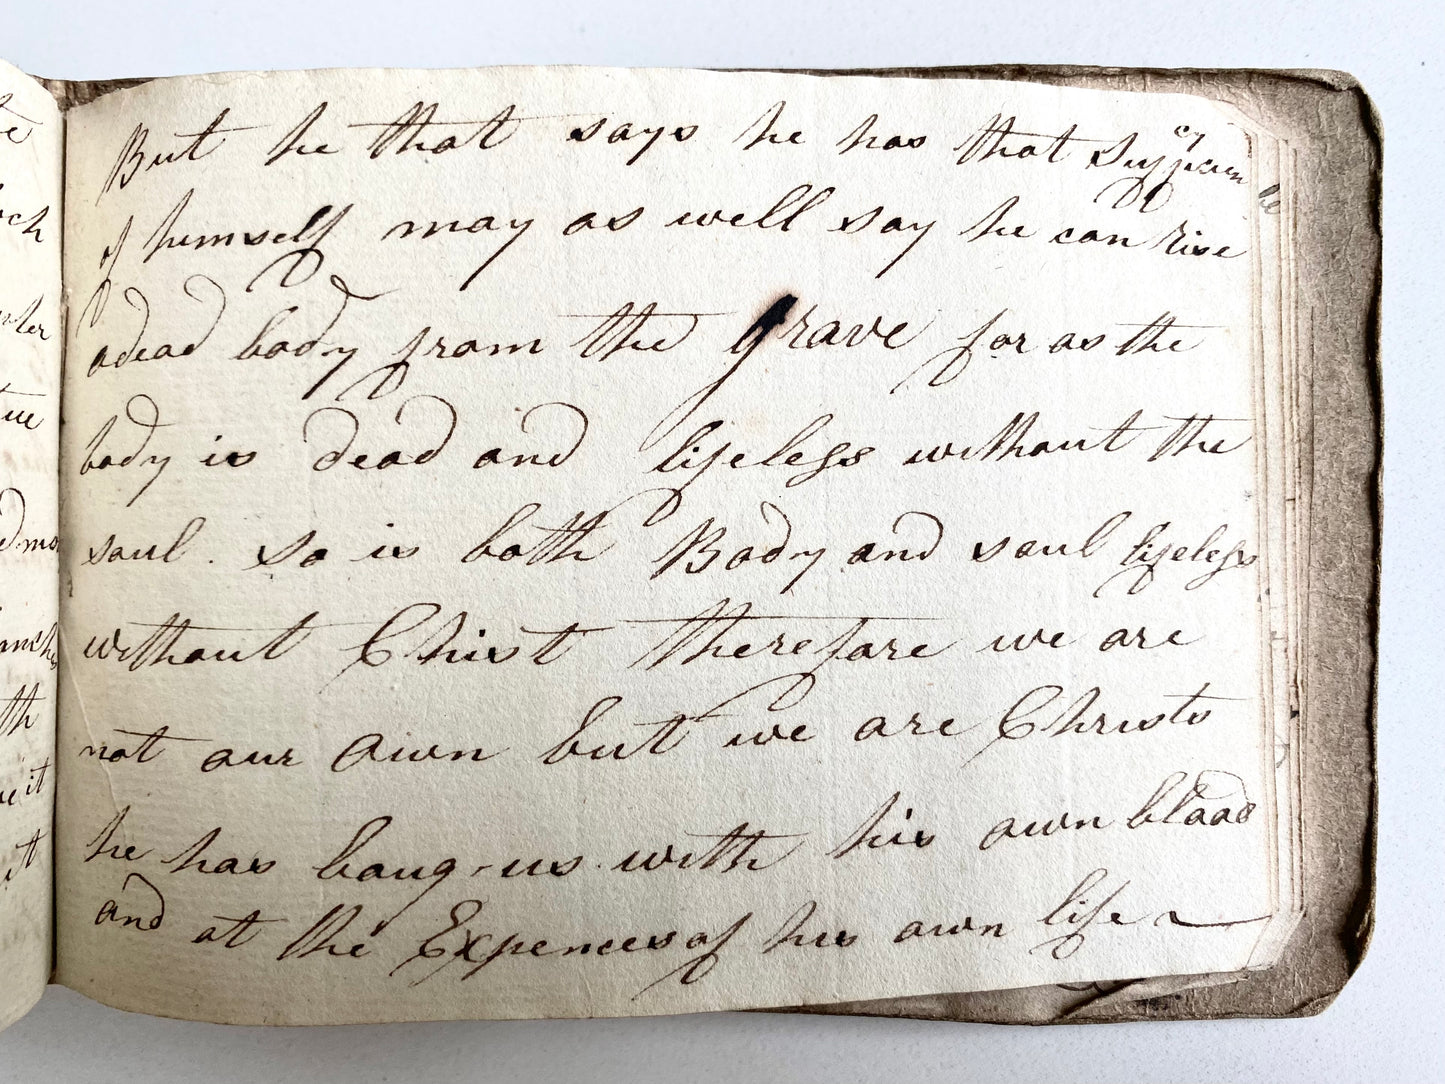 But he that says he has that
of himself may as well say he can rise
adead body from the grave for as the
body is dead and lifeless without the
soul . So is both Body and soul lifeless
without Christ therefore we are
not our own but we are Christs
he has baug-us with his own blood
and at the Expences of his own life